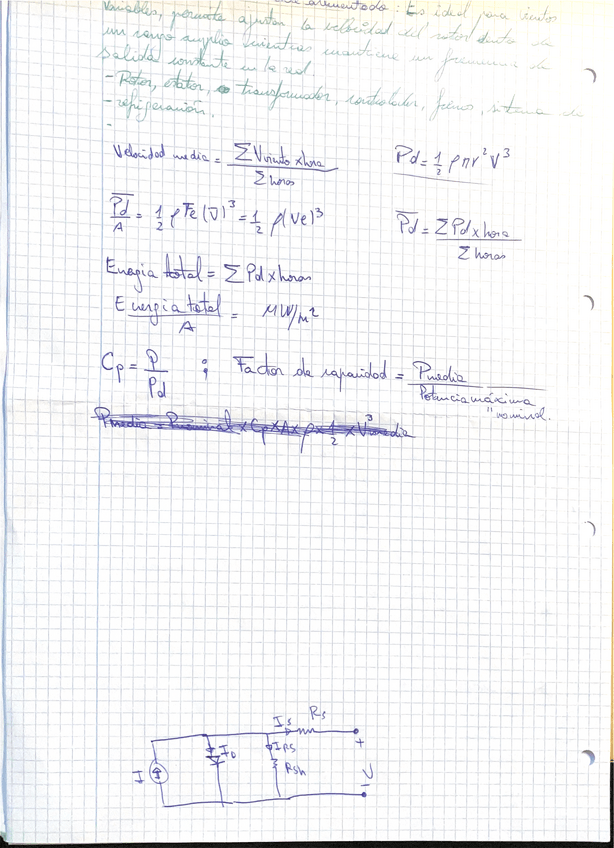 aumentado: Es ideal para vientos
Variables, permite ajustar la velocidad del rotor dentro de
un rango amplio mientras mantiene un frecuencia de
salida constante en la red.
- Rotor, estator, transformador, controlador, frenos, sistema de
- refrigeración.
-
Velocidad media = ΣVviento x hora / Σ horas
Pd = 1/2 ρπr²V³
P̅d/A = 1/2 ρ Fe (V̅)³ = 1/2 ρ(Ve)³
P̅d = Σ Pd x hora / Σ horas
Energia total = Σ Pd x horas
Energia total / A = MW/m²
Cp = P/Pd ; Factor de capacidad = Pmedia / Potencia máxima
" nominal.
Pmedia = Pnominal x Cp x A x ρ x 1/2 x Vmedia³
Is Rs
+
I ID IRS
Rsh V
-